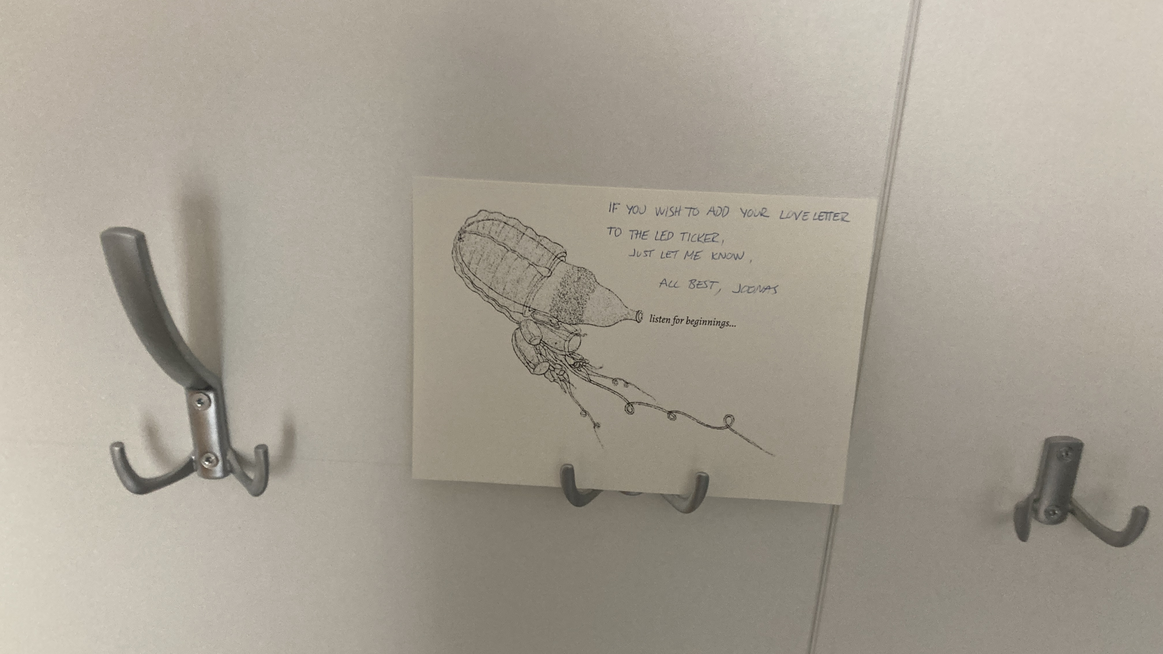 IF YOU WISH TO ADD YOUR LOVE LETTER
TO THE LED TICKER,
JUST LET ME KNOW,
ALL BEST, JOONAS
listen for beginnings...